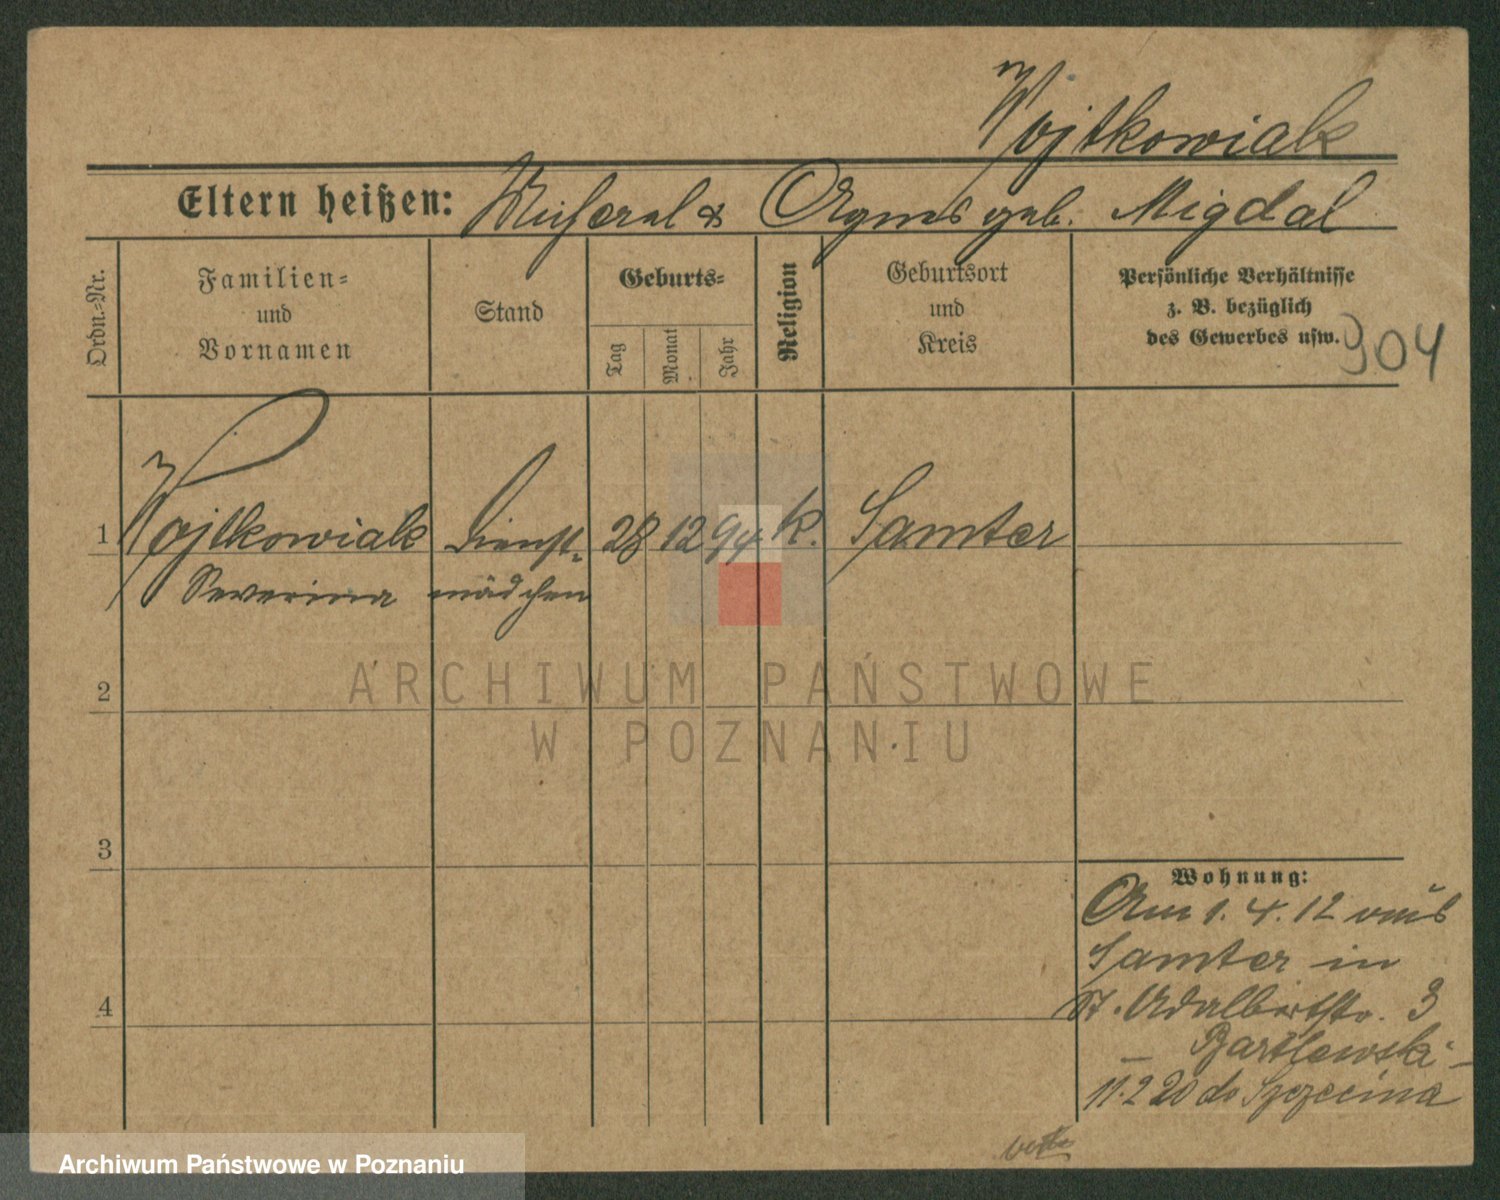 Wojtkowiak
Eltern heißen: Michael & Agnes geb. Migdal
Ordn.=Nr.
Familien=
und
Vornamen
Stand
Geburts=
Tag
Monat
Jahr
Religion
Geburtsort
und
Kreis
Persönliche Verhältnisse
z. B. bezüglich
des Gewerbes usw.
904
1 Wojtkowiak Dienst= 28 12 94 k. Samter
Severina mädchen
ARCHIWUM PAŃSTWOWE
W POZNANIU
2
3
4
Wohnung:
Am 1. 4. 12 aus
Samter in
St. Adalbertstr. 3
Bartlewski -
11.2 20 do Szczecina
Archiwum Państwowe w Poznaniu